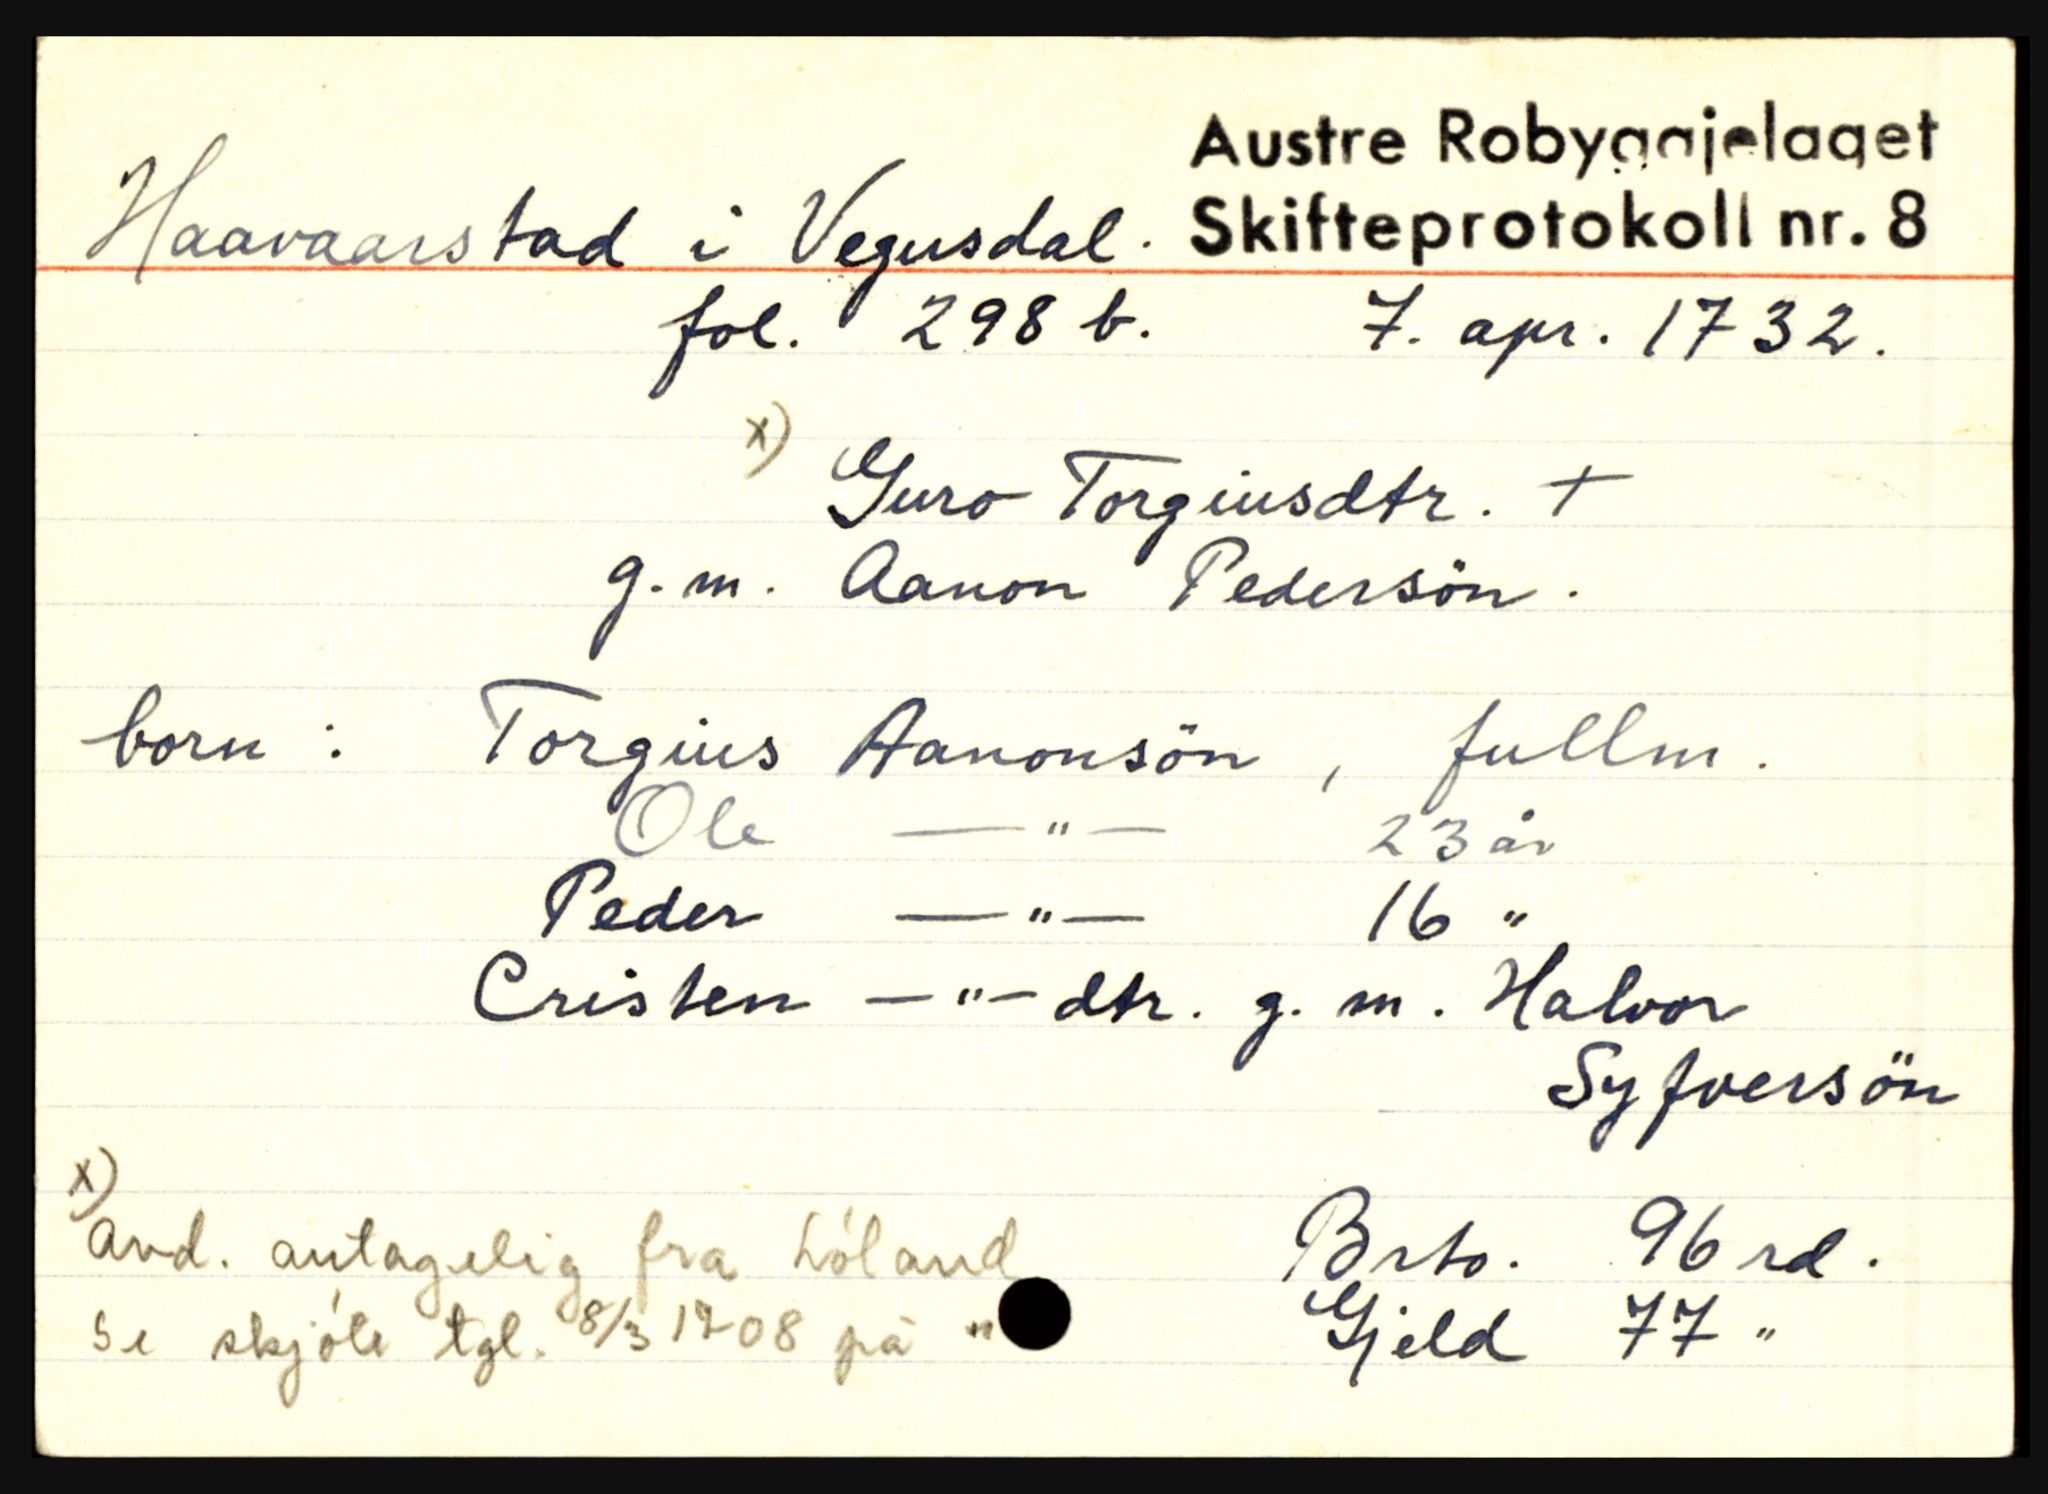 Austre Robyggjelaget
Haavaarstad i Vegusdal. Skifteprotokoll nr. 8
fol. 298 b. 7. apr. 1732.
x) Guro Torgiusdtr. +
g. m. Aanon Pedersön.
born : Torgius Aanonsön , fullm.
Ole — " — 23 år
Peder — " — 16 "
Cristen — " — dtr. g. m. Halvor
Syfversön
x)
Avd. antagelig fra Lóland Brto. 96 rd.
Se skjóte tgl. 8/3 1708 på " Gjeld 77 "